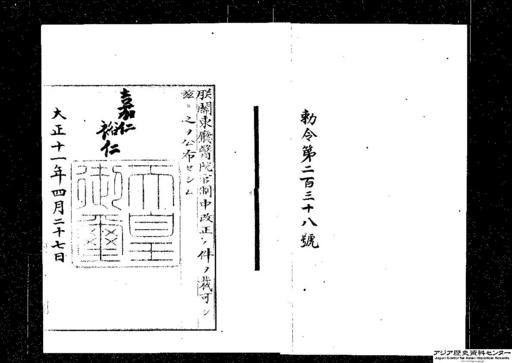 勅令第二百三十八號
朕關東廳醫院官制中改正ノ件ヲ裁可シ
茲ニ之ヲ公布セシム
嘉仁
裕仁
天皇
御璽
大正十一年四月二十七日
アジア歴史資料センター
Japan Center for Asian Historical Records